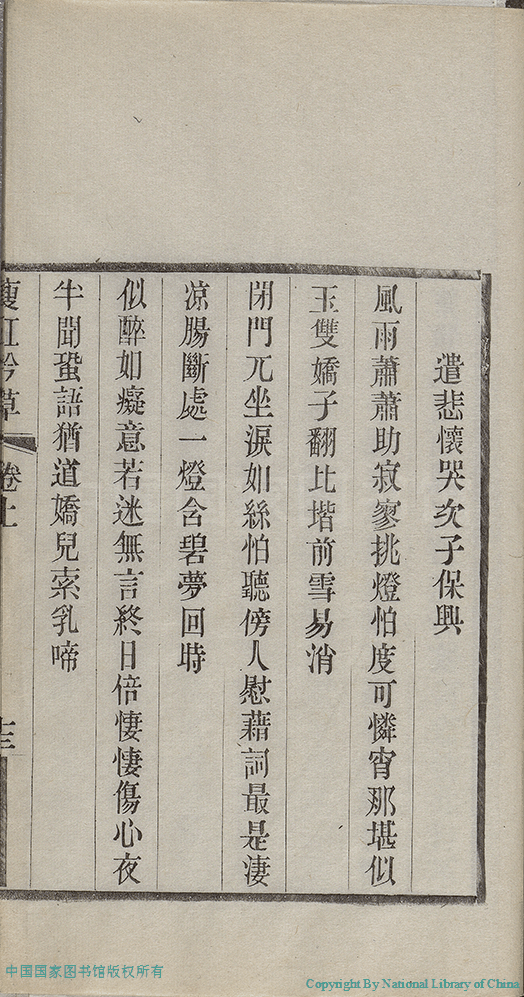 遣悲懷哭次子保興
風雨蕭蕭助寂寥挑燈怕度可憐宵那堪似
玉雙嬌子翻比堦前雪易消
閉門兀坐淚如絲怕聽傍人慰藉詞最是淒
凉腸斷處一燈含碧夢回時
似醉如癡意若迷無言終日倍悽悽傷心夜
半聞蛩語猶道嬌兒索乳啼
瘦紅吟草 卷上 十三
中国国家图书馆版权所有
Copyright By National Library of China